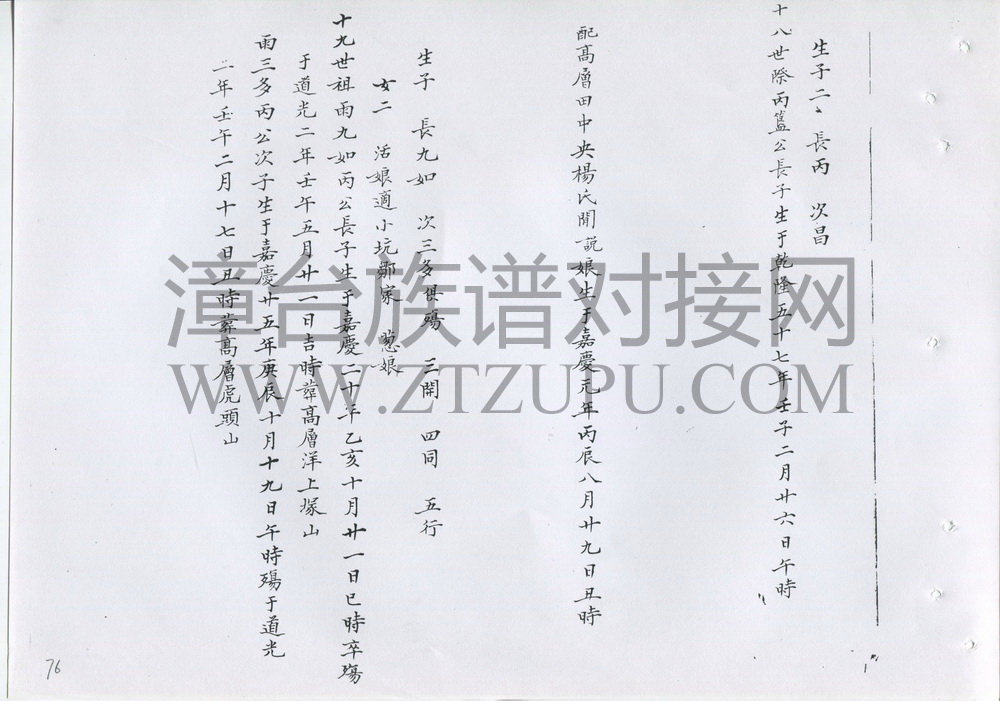 生子二 長丙 次昌
十八世祭丙簋公長子生于乾隆五十七年壬子二月廿六日午時
配高層田中央楊氏開說娘生于嘉慶元年丙辰八月廿九日丑時
生子 長九如 次三多俱殤 三開 四同 五行
女二 活娘適小坑鄒家 蔥娘
十九世祖雨九如丙公長子生于嘉慶二十年乙亥十月廿一日巳時卒殤
于道光二年壬午五月廿一日吉時葬高層洋上塚山
雨三多丙公次子生于嘉慶廿五年庚辰十月十九日午時殤于道光
二年壬午二月十七日丑時葬高層虎頭山
76
漳台族谱对接网
WWW.ZTZUPU.COM